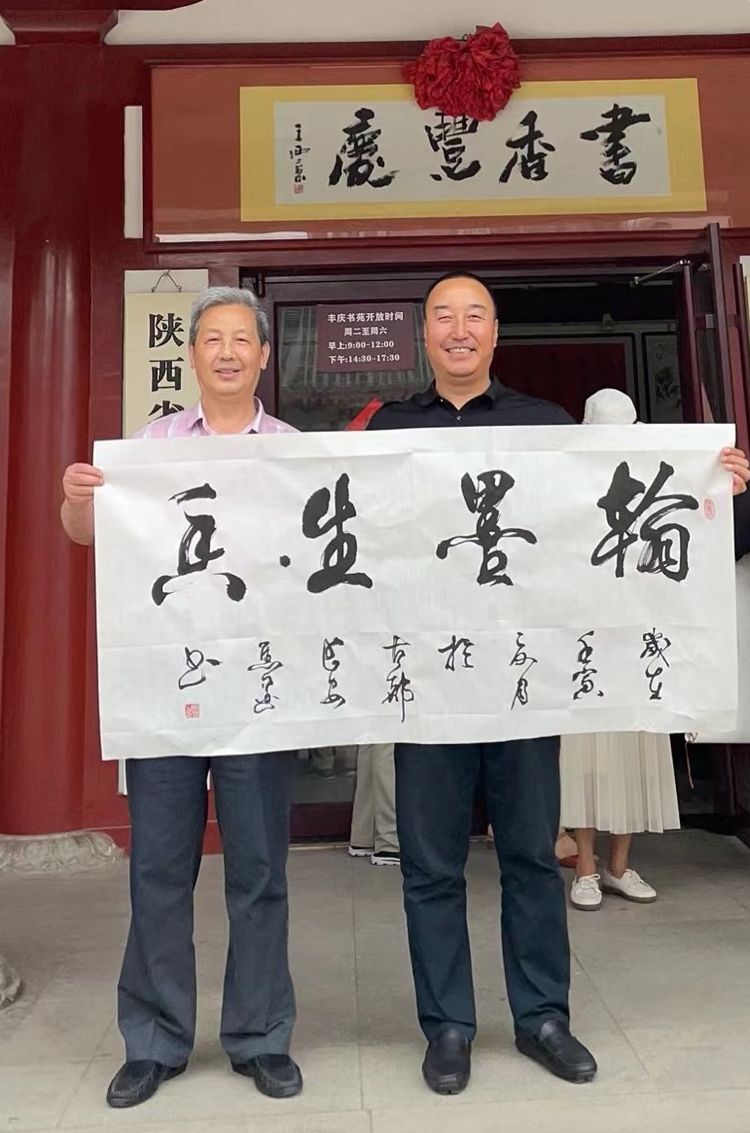 書香豐慶
陕西省
丰庆书苑开放时间
周二至周六
早上:9:00-12:00
下午:14:30-17:30
翰墨生
歲在
壬寅
夏月
於
古都
長安
书